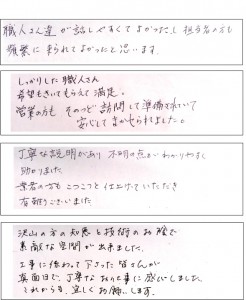 職人さん達が話しやすくてよかったし担当者の方も
頻繁に来られてよかったと思います。
しっかりした職人さん
希望もきいてもらえて満足。
営業の方も そのつど訪問して準備されていて
安心してまかせられました。
丁寧な説明があり 不明の点がわかりやすく
助かりました。
業者の方もこつこつと仕上げていただき
有難うございました
沢山の方の知恵と技術のお陰で
素敵な空間が出来ました。
工事に携わって下さった皆さんが
真面目で、丁寧なお仕事に感心しました。
これからも、宜しくお願いします。